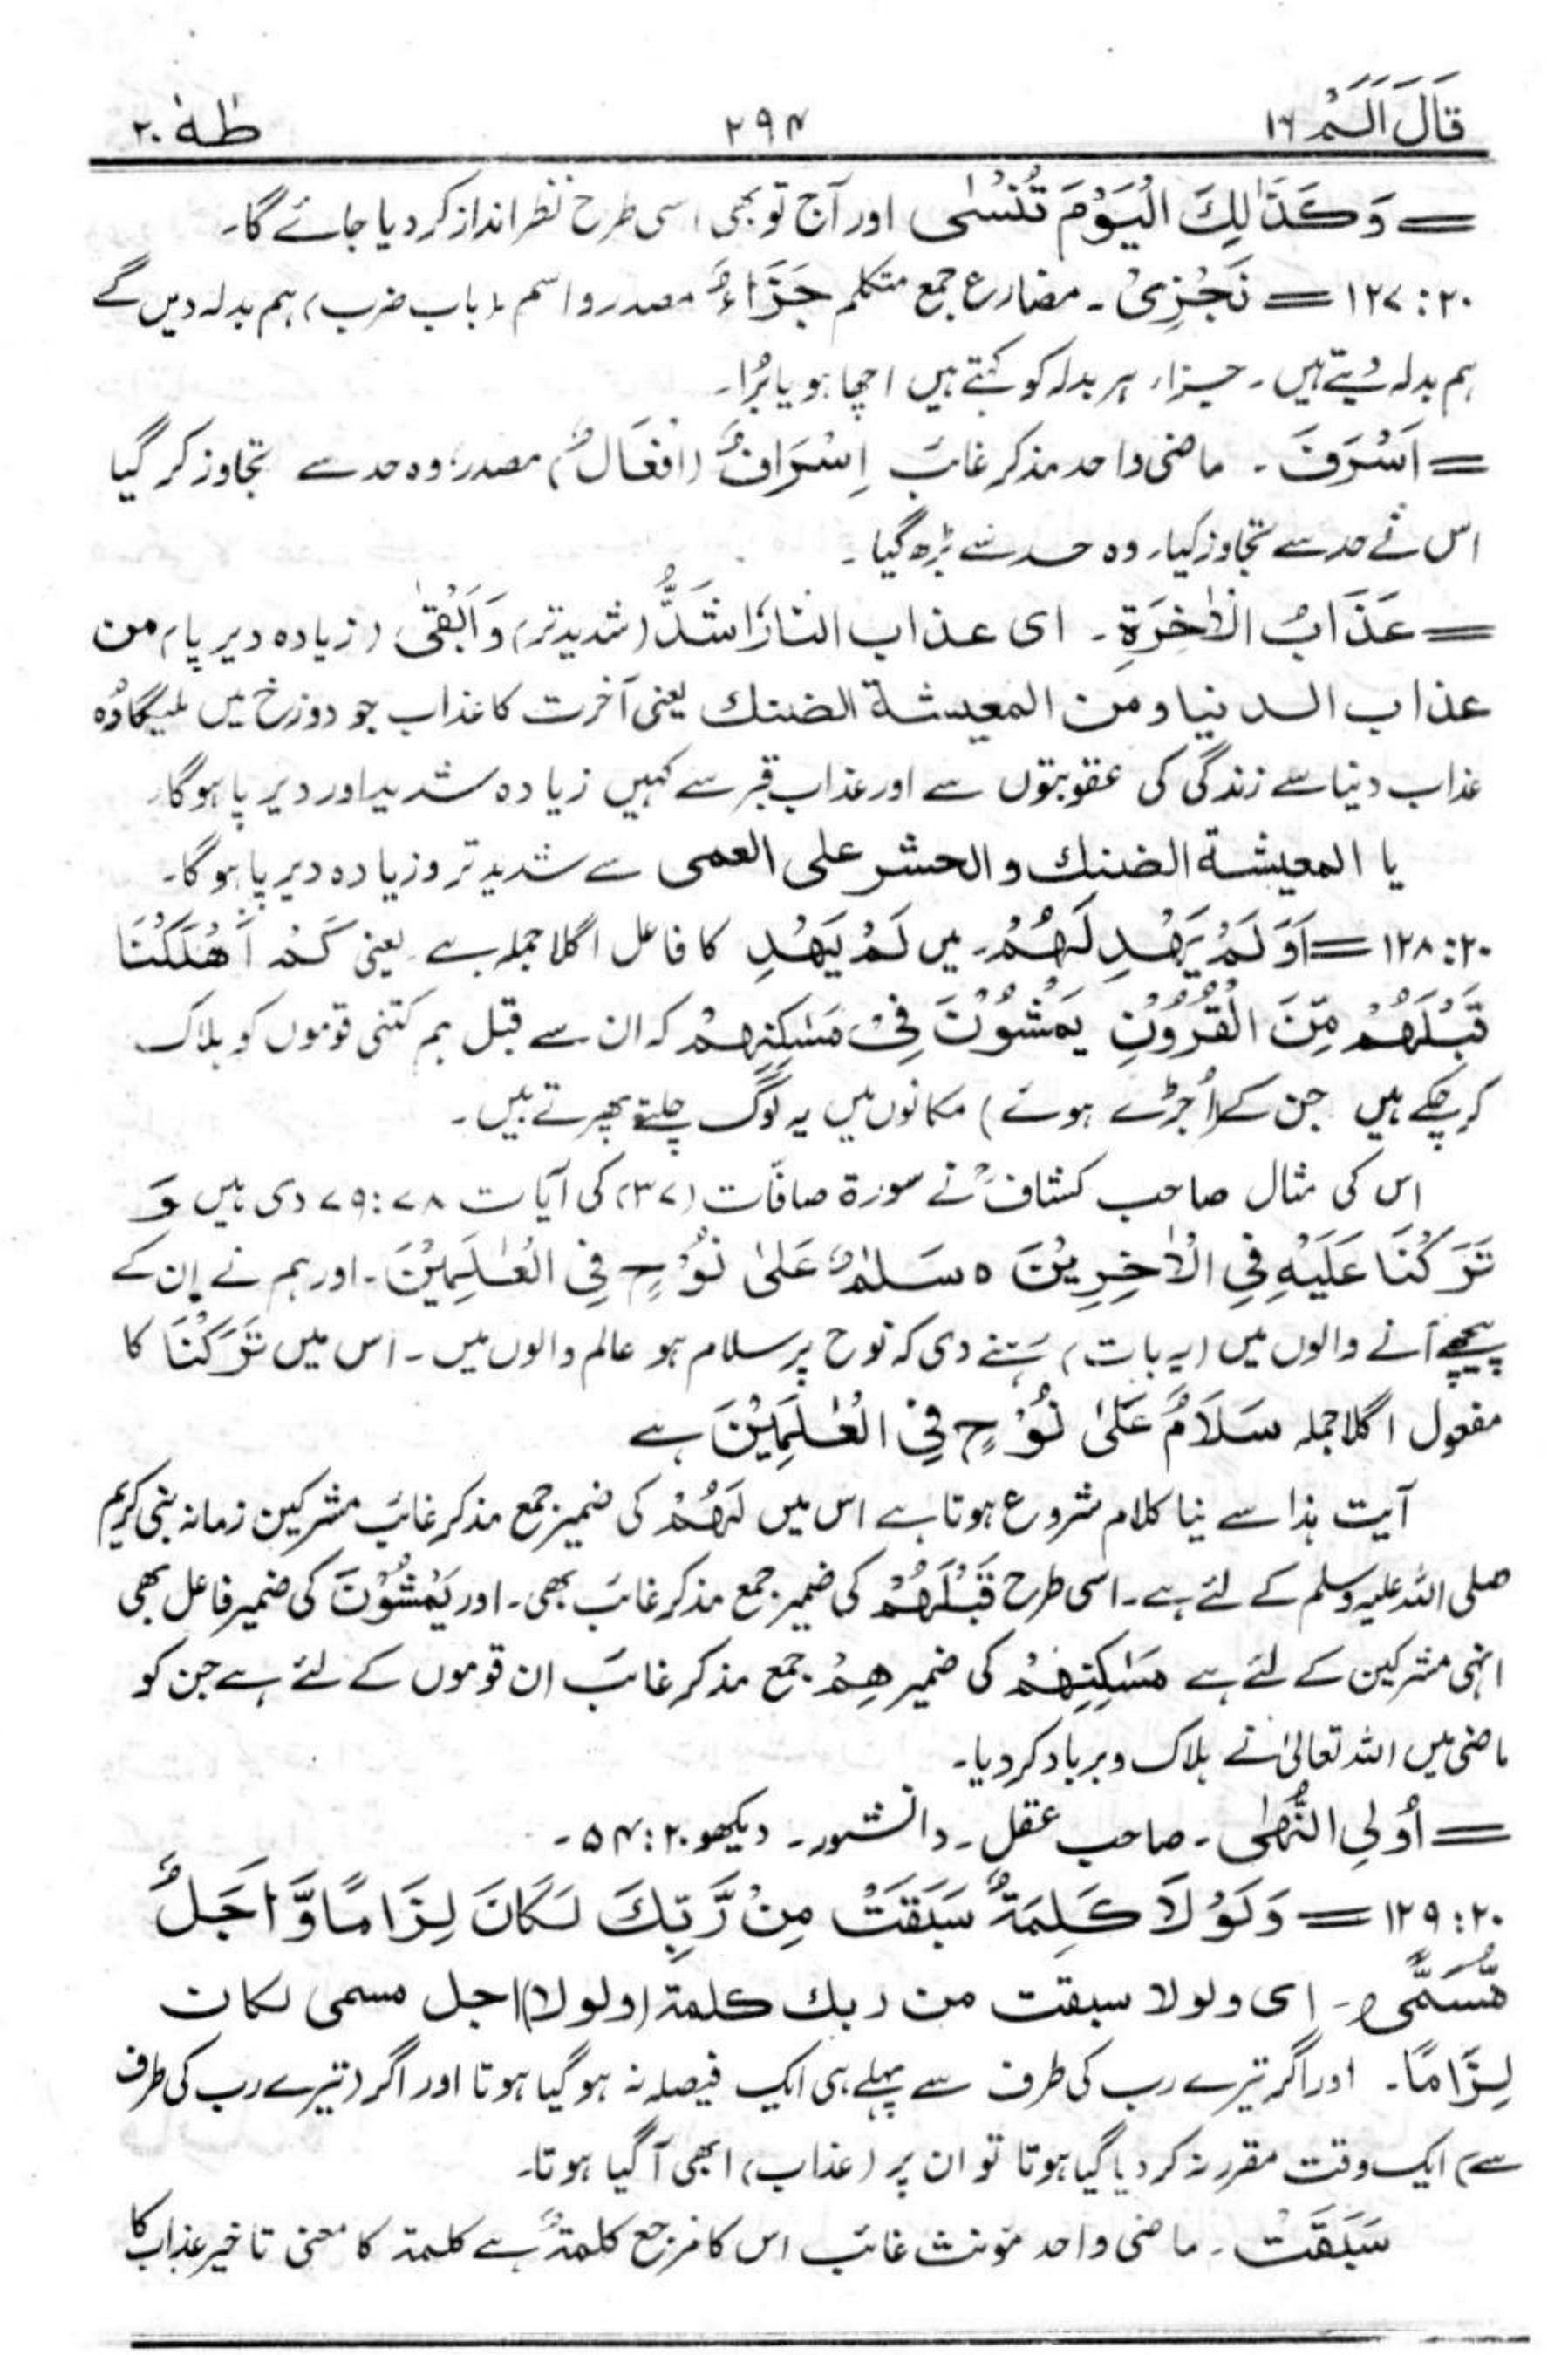 قَالَ اَلَمْ ١٦ ٢٩٤ طٰهٰ ٢٠
= وَكَذٰلِكَ الْيَوْمَ تُنْسٰى اور آج تو بھی اسی طرح نظر انداز کر دیا جائے گا۔
٢٠: ١٢٧ = نَجْزِىْ۔ مضارع جمع متکلم جَزَاءٌ مصدر و اسم (باب ضرب) ہم بدلہ دیں گے
ہم بدلہ دیتے ہیں۔ جزاء ہر بدلہ کو کہتے ہیں اچھا ہو یا بُرا۔
= اَسْرَفَ۔ ماضی واحد مذکر غائب اِسْرَافٌ (اِفْعَالٌ) مصدر، وہ حد سے تجاوز کر گیا
اس نے حد سے تجاوز کیا۔ وہ حد سے بڑھ گیا۔
= عَذَابُ الْاٰخِرَةِ۔ ای عذاب النار اَشَدُّ (شدید تر) وَاَبْقٰى (زیادہ دیر پا) من
عذاب الدنیا و من المعیشة الضنك یعنی آخرت کا عذاب جو دوزخ میں ملیگا وُہ
عذاب دنیا سے زندگی کی عقوبتوں سے اور عذاب قبر سے کہیں زیادہ شدید اور دیر پا ہوگا۔
یا المعیشة الضنك و الحشر على العمى سے شدید تر و زیادہ دیر پا ہوگا۔
٢٠: ١٢٨ = اَوَلَمْ يَهْدِ لَهُمْ۔ میں لَمْ يَهْدِ کا فاعل اگلا جملہ ہے۔ یعنی كَمْ اَهْلَكْنَا
قَبْلَهُمْ مِّنَ الْقُرُوْنِ يَمْشُوْنَ فِىْ مَسٰكِنِهِمْ کہ ان سے قبل ہم کتنی قوموں کو ہلاک
کر چکے ہیں جن کے (اُجڑے ہوئے) مکانوں میں یہ لوگ چلتے پھرتے ہیں۔
اس کی مثال صاحب کشافؒ نے سورۃ صافّات (٣٧) کی آیات ٧٨: ٧٩ دی ہیں وَ
تَرَكْنَا عَلَيْهِ فِى الْاٰخِرِيْنَ ہ سَلٰمٌ عَلٰى نُوْحٍ فِى الْعٰلَمِيْنَ۔ اور ہم نے ان کے
پیچھے آنے والوں میں (یہ بات) رہنے دی کہ نوح پر سلام ہو عالم والوں میں۔ اس میں تَرَكْنَا کا
مفعول اگلا جملہ سَلَامٌ عَلٰى نُوْحٍ فِى الْعٰلَمِيْنَ ہے
آیت ہذا سے نیا کلام شروع ہوتا ہے اس میں لَهُمْ کی ضمیر جمع مذکر غائب مشرکین زمانہ نبی کریم
صلی اللہ علیہ وسلم کے لئے ہے۔ اسی طرح قَبْلَهُمْ کی ضمیر جمع مذکر غائب بھی۔ اور يَمْشُوْنَ کی ضمیر فاعل بھی
انہی مشرکین کے لئے ہے مَسٰكِنِهِمْ کی ضمیر هِمْ جمع مذکر غائب ان قوموں کے لئے ہے جن کو
ماضی میں اللہ تعالیٰ نے ہلاک و برباد کر دیا۔
= اُولِى النُّهٰى۔ صاحب عقل۔ دانشور۔ دیکھو ٢٠: ٥٤۔
٢٠: ١٢٩ = وَلَوْلَا كَلِمَةٌ سَبَقَتْ مِنْ رَّبِّكَ لَكَانَ لِزَامًا وَّاَجَلٌ
مُّسَمًّى ہ۔ ای و لولا سبقت من ربك كلمة (ولولا) اجل مسمى لكان
لِزَامًا۔ اور اگر تیرے رب کی طرف سے پہلے ہی ایک فیصلہ نہ ہو گیا ہوتا اور اگر (تیرے رب کی طرف
سے) ایک وقت مقرر نہ کر دیا گیا ہوتا تو ان پر (عذاب) ابھی آ گیا ہوتا۔
سَبَقَتْ۔ ماضی واحد مؤنث غائب اس کا مرجع كلمةٌ ہے كلمة کا معنی تاخیر عذاب کا